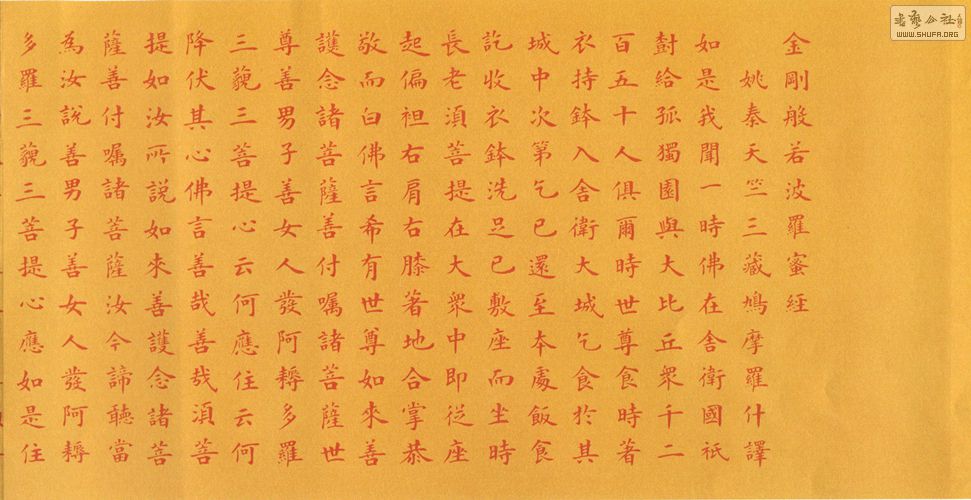 金剛般若波羅蜜經
姚秦天竺三藏鳩摩羅什譯
如是我聞一時佛在舍衛國祇
𡬶給孤獨園與大比丘眾千二
百五十人俱爾時世尊食時著
衣持鉢入舍衛大城乞食於其
城中次第乞已還至本處飯食
訖收衣鉢洗足已敷座而坐時
長老須菩提在大眾中即從座
起偏袒右肩右膝著地合掌恭
敬而白佛言希有世尊如來善
護念諸菩薩善付囑諸菩薩世
尊善男子善女人發阿耨多羅
三藐三菩提心云何應住云何
降伏其心佛言善哉善哉須菩
提如汝所說如來善護念諸菩
薩善付囑諸菩薩汝今諦聽當
為汝說善男子善女人發阿耨
多羅三藐三菩提心應如是住
書藝公社
WWW.SHUFA.ORG